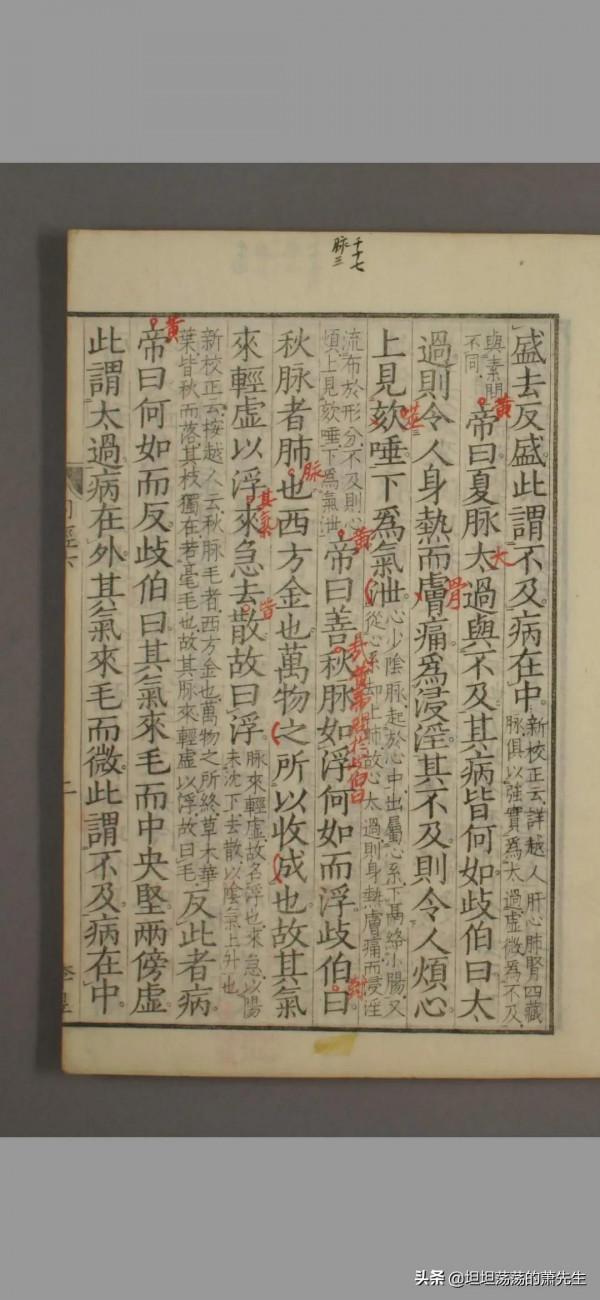 千十七
脉三
盛去反盛此謂不及病在中新校正云詳越人肝心肺腎四藏
脉俱以強實爲太過虛微爲不及
與素問
不同
黄
帝曰夏脉太過與不及其病皆何如歧伯曰太
過則令人身熱而膚痛爲浸淫其不及則令人煩心
骨
上見欬唾下爲氣泄心少陰脉起於心中出屬心系下鬲絡小腸又
從心系却上肺故心太過則身熱膚痛而浸淫
流布於形分不及則心
煩上見欬唾下爲氣泄
黄
帝曰善秋脉如浮何如而浮歧伯曰
秋脉者肺也西方金也萬物之所以收成也故其氣
脉
來輕虛以浮來急去散故曰浮脉來輕虛故名浮也來急以陽
未沈下去散以陰氣上升也
其氣
皆
新校正云按越人云秋脉毛者西方金也萬物之所終草木華
葉皆秋而落其枝獨在若毫毛也故其脉來輕虛以浮故曰毛
反此者病
黄
帝曰何如而反歧伯曰其氣來毛而中央堅兩傍虛
此謂太過病在外其氣來毛而微此謂不及病在中
二
头条 @坦坦荡荡的萧先生